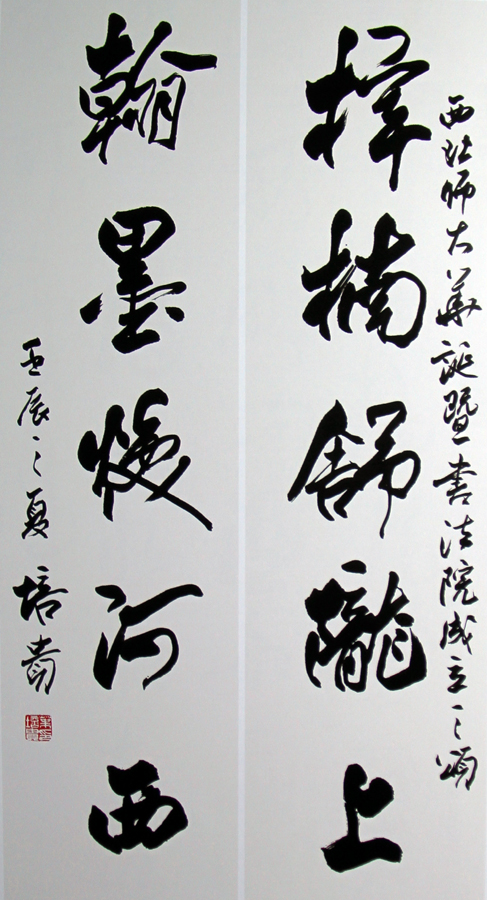 西北師大華誕暨書法院成立之頌
擇楠舒隴上
翰墨煖河西
壬辰之夏 培貴